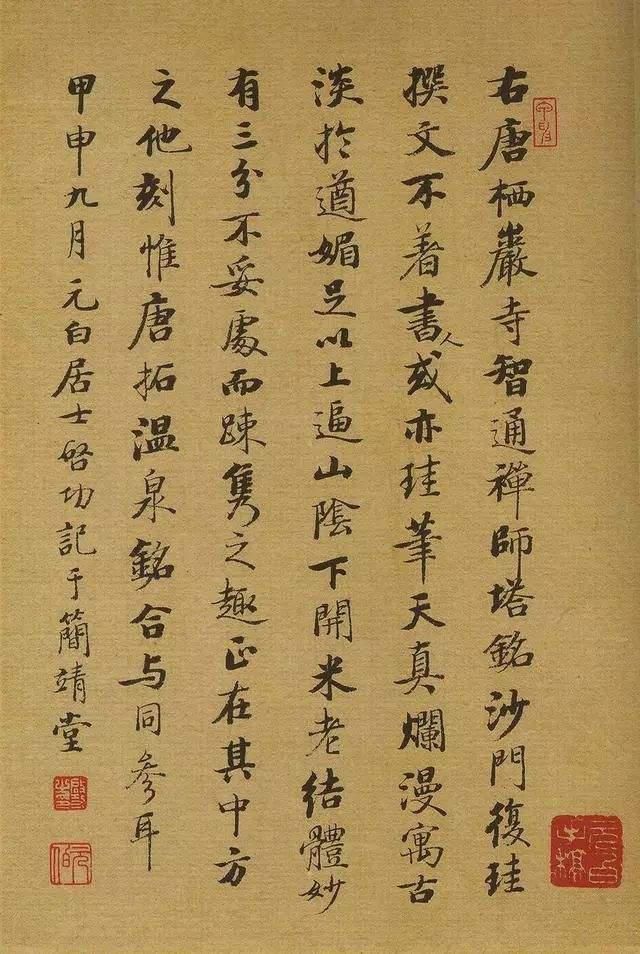 右唐栖巖寺智通禪師塔銘沙門復珪
撰文不著書人或亦珪筆天真爛漫寓古
淡於遒媚足以上逼山陰下開米老結體妙
有三分不妥處而疎雋之趣正在其中方
之他刻惟唐拓溫泉銘合与同參耳
甲申九月元白居士啓功記于簡靖堂
啟功
元伯